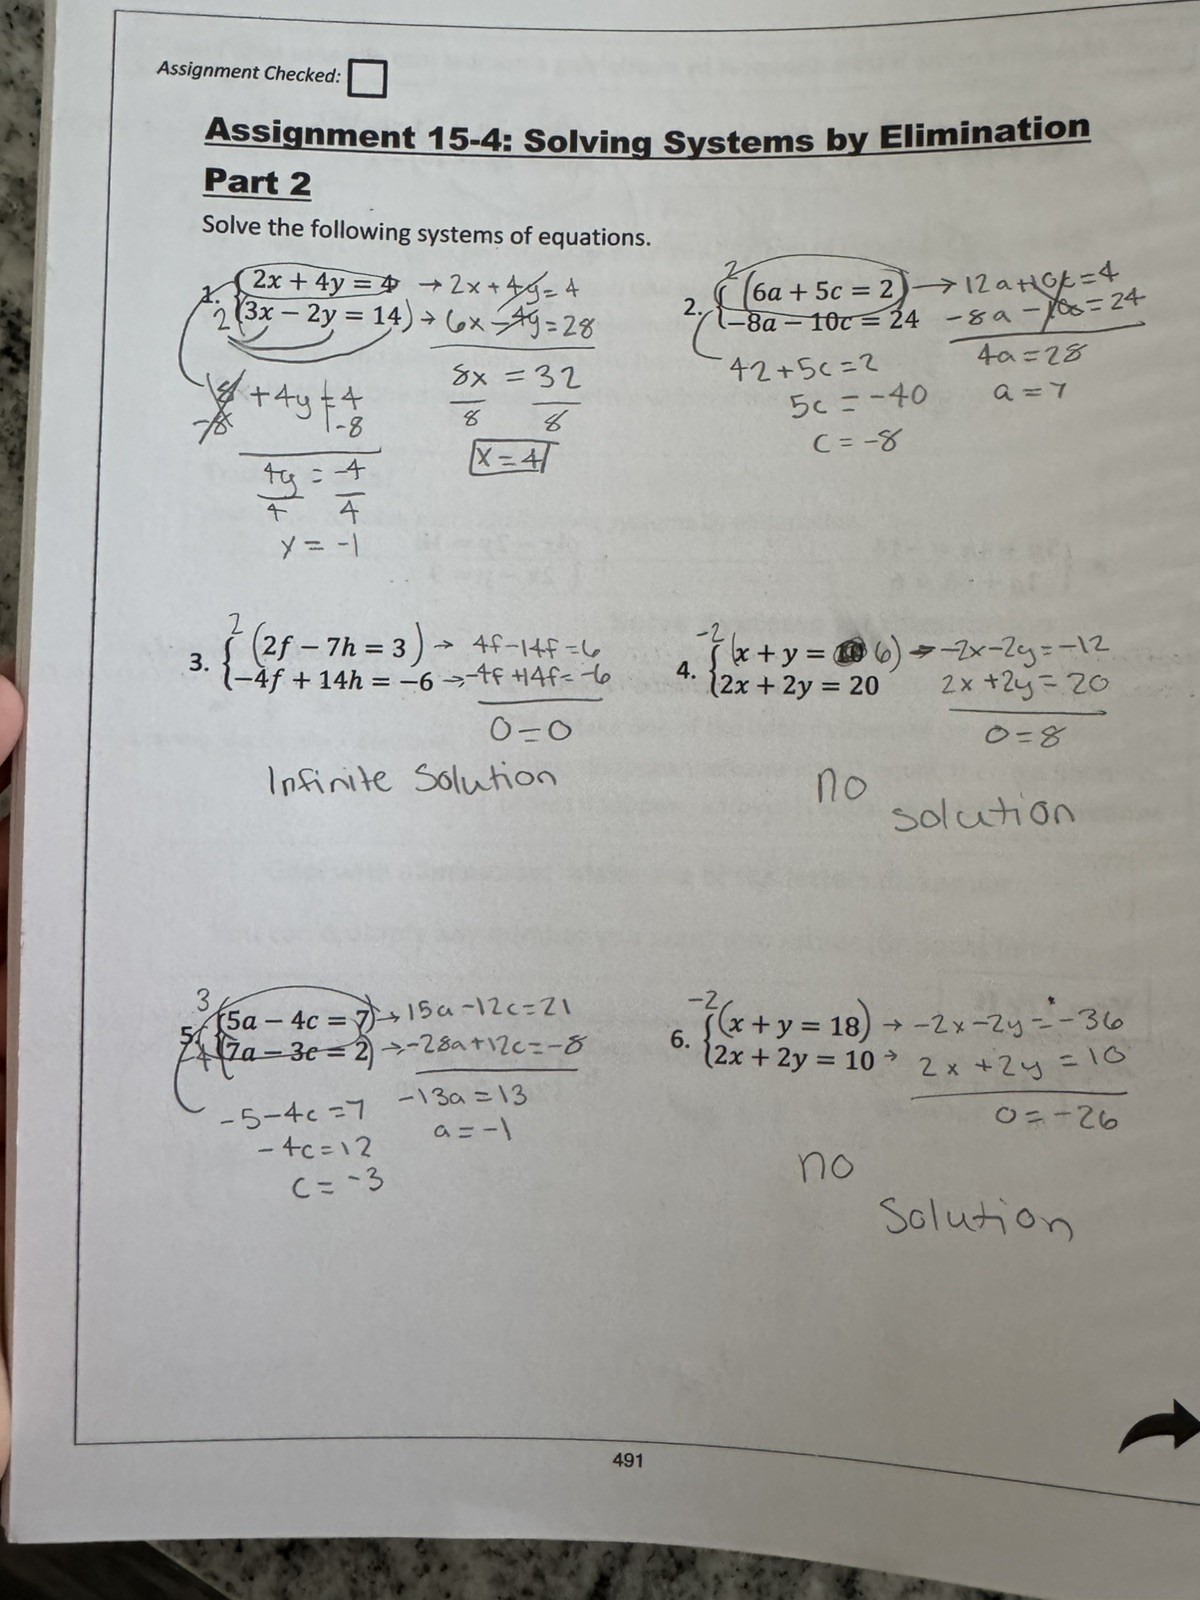 Assignment Checked:
Assignment 15-4: Solving Systems by Elimination
Part 2
Solve the following systems of equations.
1. 2x + 4y = 4 → 2x + 4y = 4
2(3x − 2y = 14) → 6x − 4y = 28
8x = 32
8 8
x = 4
8 + 4y = 4
-8 -8
4y = -4
4 4
y = -1
2. 2(6a + 5c = 2) → 12a + 10c = 4
−8a − 10c = 24 -8a - 10c = 24
4a = 28
a = 7
42 + 5c = 2
5c = -40
c = -8
3. 2(2f − 7h = 3) → 4f - 14f = 6
−4f + 14h = −6 → -4f + 14f = -6
0 = 0
Infinite Solution
4. -2(x + y = 6) → -2x - 2y = -12
2x + 2y = 20 2x + 2y = 20
0 = 8
no
solution
5. 3(5a − 4c = 7) → 15a - 12c = 21
-4(7a − 3c = 2) → -28a + 12c = -8
-13a = 13
a = -1
-5 - 4c = 7
-4c = 12
c = -3
6. -2(x + y = 18) → -2x - 2y = -36
2x + 2y = 10 → 2x + 2y = 10
0 = -26
no
Solution
491